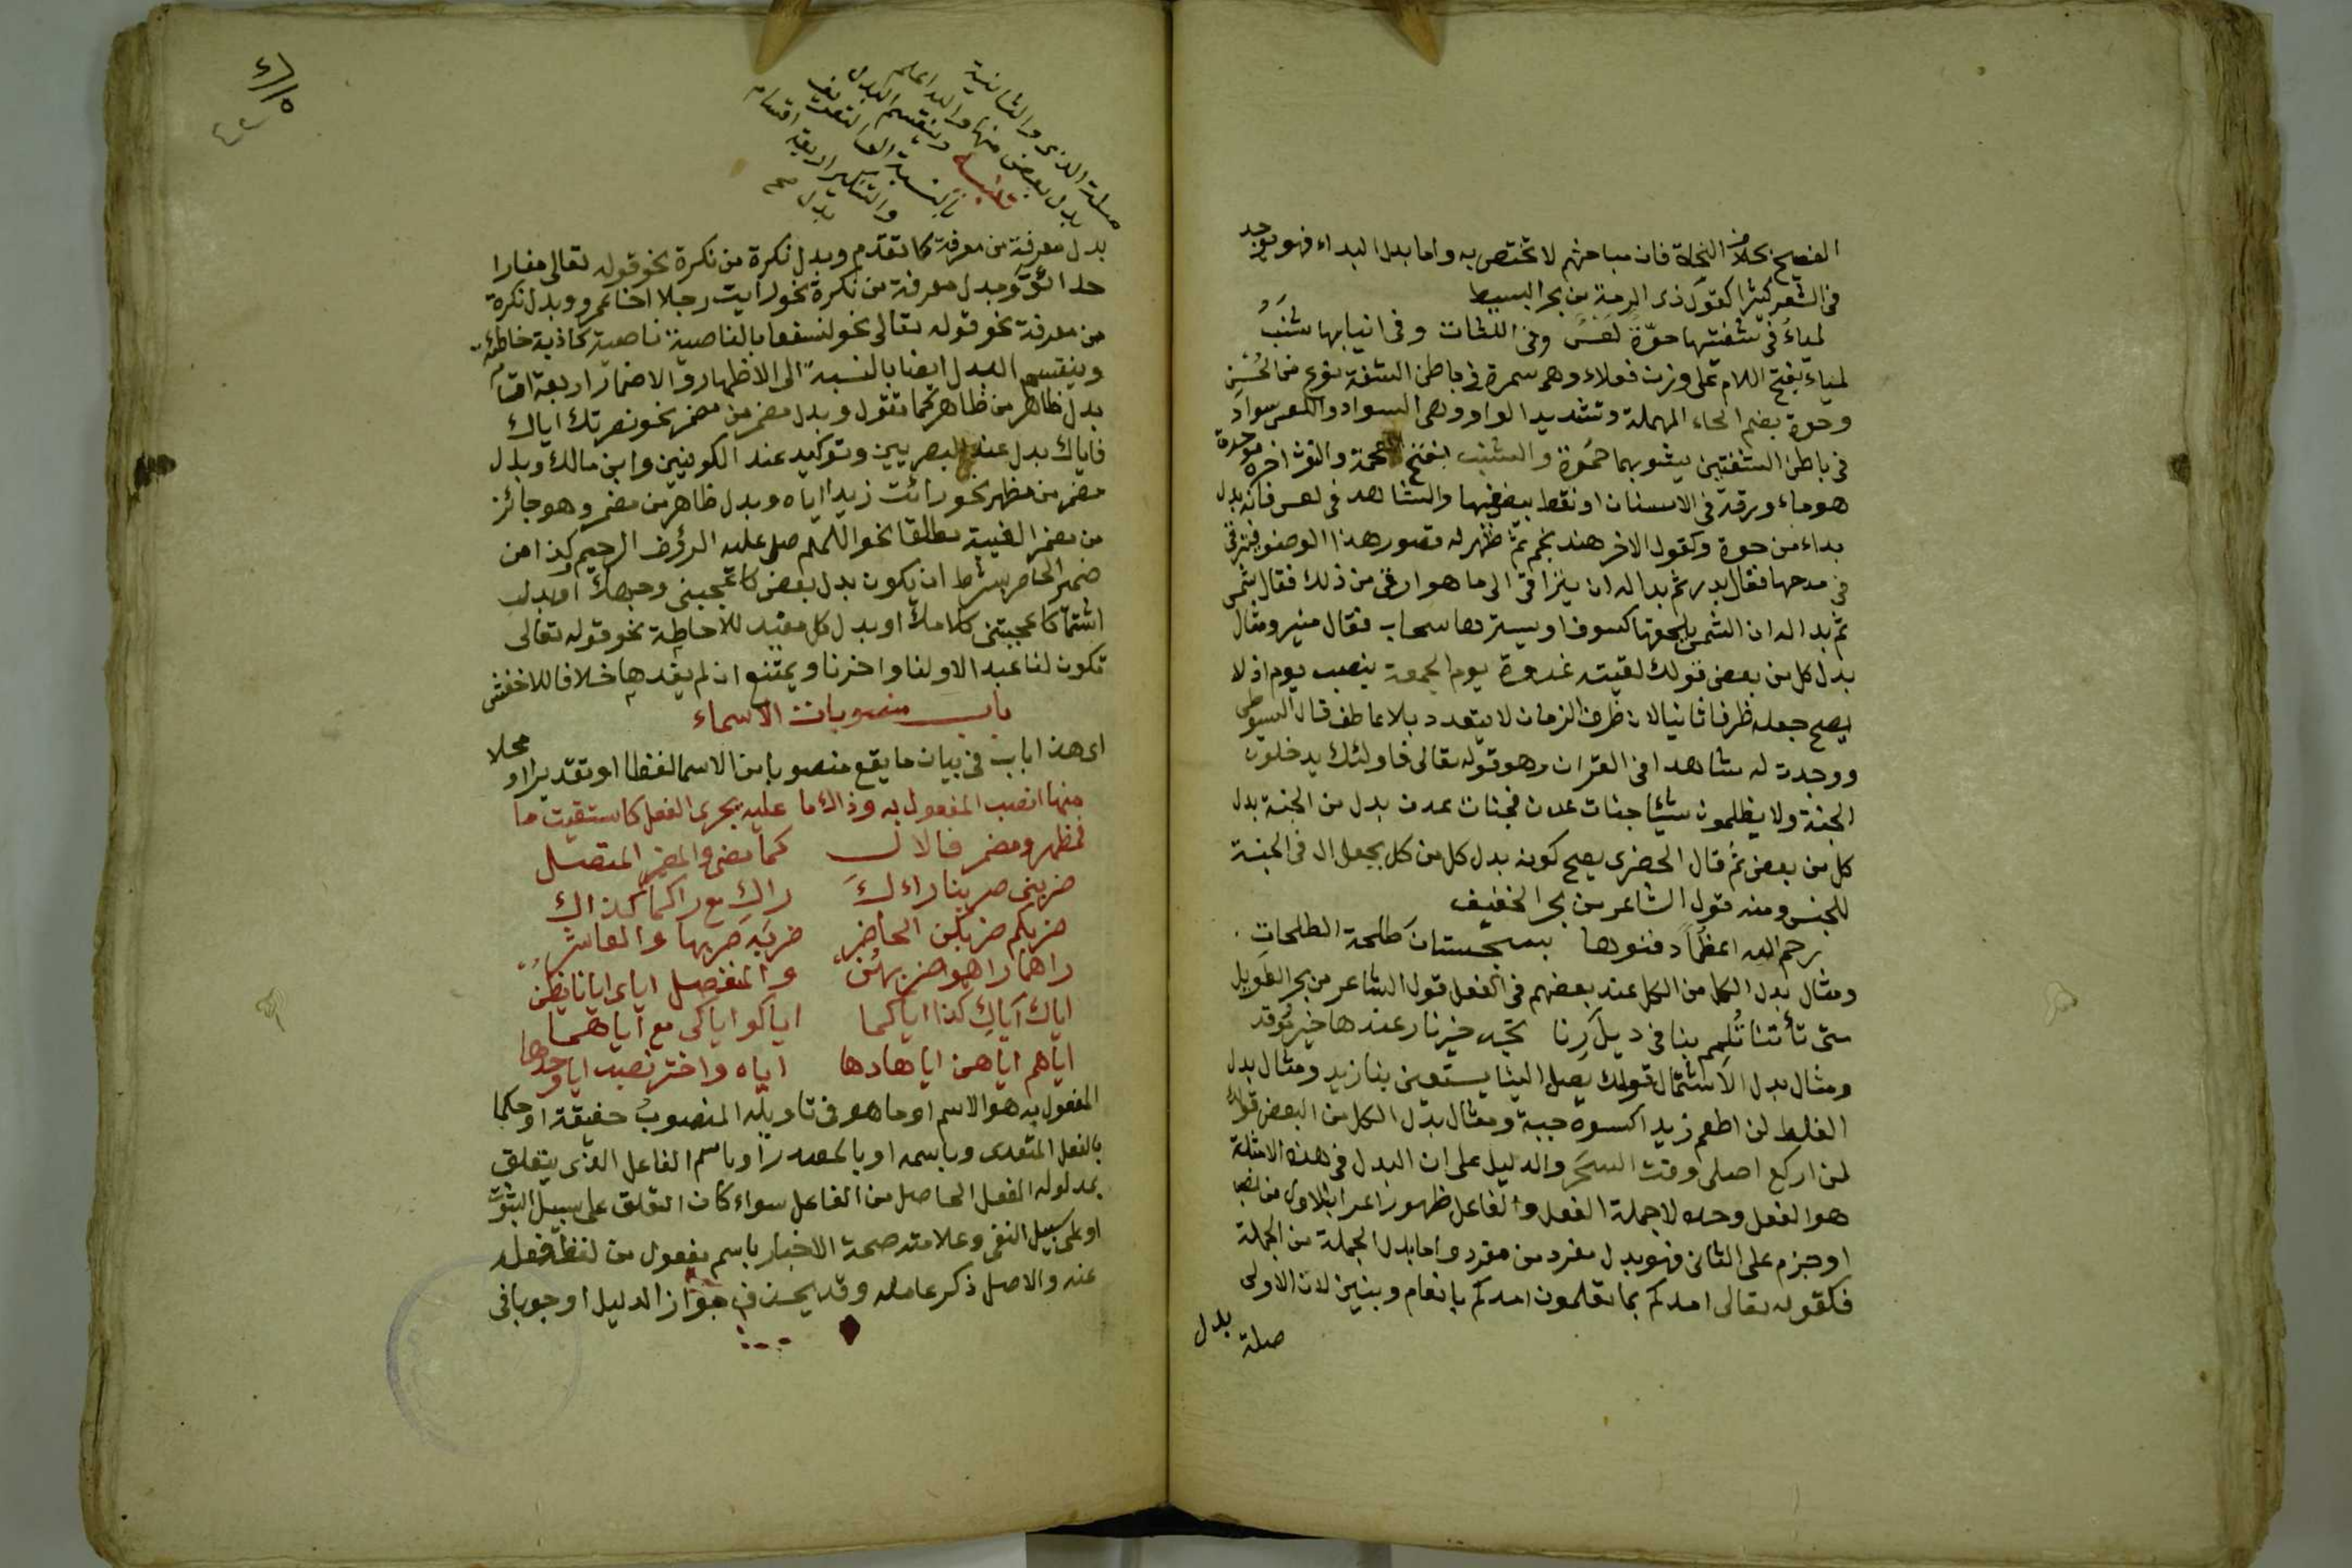 الفصيح بخلاف النحاة فان مباحثهم لا تختص به واما بدل البداء فهو يوجد
فى الشعر كثيرا كقول ذى الرمة من بحر البسيط
لمياء فى شفتيها حوّة لعس وفى اللثات وفى انيابها شنب
لمياء بفتح اللام على وزن فعلاء وهى سمرة فى باطن الشفة نوع من الحُسْن
وحوة بضم الحاء المهملة وتشديد الواو وهى السواد واللعس سواد
فى باطن الشفتين يشوبهما حمرة والشنب بفتح المعجمة والنون اخره موحدة
هو ماء ورقة فى الاسنان او نقط بيض فيها والشاهد فى لعس فانه بدل
بداء من حوة وكقول الاخر هند نجم ثم ظهر له قصور هذا الوصف فترقى
فى مدحها فقال بدر ثم بدا له ان يترا قى الى ما هو ارقى من ذلك فقال شمس
ثم بدا له ان الشمس يلحقها كسوف او يسترها سحاب فقال منير ومثال
بدل كل من بعض قولك لقيته غدوة يوم الجمعة بنصب يوم اذ لا
يصح جعله ظرفا ثانيا لان ظرف الزمان لا يتعدد بلا عاطف قال السيوطى
ووجدت له شاهدا فى القران وهو قوله تعالى فاولئك يدخلون
الجنة ولا يظلمون شيئا جنات عدن فجنات عدن بدل من الجنة بدل
كل من بعض ثم قال الخضرى يصح كونه بدل كل من كل بجعل ال فى الجنة
للجنس ومنه قول الشاعر من بحر الخفيف
رحم الله اعظما دفنوها بسجستان طلحة الطلحات
ومثال بدل الكل من الكل عند بعضهم فى الفعل قول الشاعر من بحر الطويل
متى تأتنا تُلمم بنا فى ديارنا تجد خير نار عندها خير مُوقد
ومثال بدل الاشتمال قولك يصل الينا يستعن بنا زيد ومثال بدل
الغلط لن اطعم زيدا اكسوه جبة ومثال بدل الكل من البعض قولك
لمن اركع اصلى وقت السحر والدليل على ان البدل فى هذه الامثلة
هو الفعل وحده لا جملة الفعل والفاعل ظهور اعراب الاول من نصب
او جزم على الثانى فهو بدل مفرد من مفرد واما بدل الجملة من الجملة
فكقوله تعالى امدكم بما تعلمون امدكم بانعام وبنين لان الاولى
صلة بدل
صلة الذى والثانية
بدل بعض منها والله اعلم
تنبيه وينقسم البدل
بالنسبة الى التعريف
والتنكير اربعة اقسام
بدل صح
بدل معرفة من معرفة كما تقدم وبدل نكرة من نكرة نحو قوله تعالى مفازا
حدائق وبدل معرفة من نكرة نحو رايت رجلا اخا عمرو وبدل نكرة
من معرفة نحو قوله تعالى نحو لنسفعا بالناصية ناصية كاذبة خاطئة
وينقسم البدل ايضا بالنسبة الى الاظهار والاضمار اربعة اقسام
بدل ظاهر من ظاهر كما تقول وبدل مضمر من مضمر نحو نصرتك اياك
فاياك بدل عند البصريين وتوكيد عند الكوفيين وابن مالك وبدل
مضمر من مظهر نحو رائت زيدا اياه وبدل ظاهر من مضمر وهو جائز
من مضمر الغيبة مطلقا نحو اللهم صل عليه الرؤف الرحيم وكذا من
ضمير الحاضر بشرط ان يكون بدل بعض كاعجبنى وجهك او بدل
اشتمال كاعجبتنى كلامك او بدل كل مفيد للاحاطة نحو قوله تعالى
تكون لنا عيدا لاولنا واخرنا ويمتنع ان لم يفدها خلافا للاخفش
باب منصوبات الاسماء
اى هذا باب فى بيان ما يقع منصوبا من الاسم لفظا او تقديرا او محلا
منها انصب المفعول به وذاك ما عليه يجرى الفعل كاستقيت ما
فمظهر ومضمر فالاول كما مضى والمضمر المتصل
ضربنى ضربنا راءلكَ راكِ مع راكما كذاك
ضربكم ضربكن الحاضر ضربه ضربها والعاشر
راهما راهمو ضربهن والمنفصل اياى ايانا يظن
اياك اياكِ كذا اياكما اياكمو اياكن مع اياهما
اياهم اياهن اياها وها اياه واختر نصب ايا وحدها
المفعول به هو الاسم او ما هو فى تاويله المنصوب حقيقة او حكما
بالفعل المتعدى وباسمه او بالمصدر او باسم الفاعل الذى يتعلق
بمدلوله الفعل الحاصل من الفاعل سواء كان التعلق على سبيل الثبوت
او على سبيل النفى وعلامته صحة الاخبار باسم مفعول من لفظ فعله
عنه والاصل ذكر عامله وقد يحسن فى جواز الدليل او جوبا فى